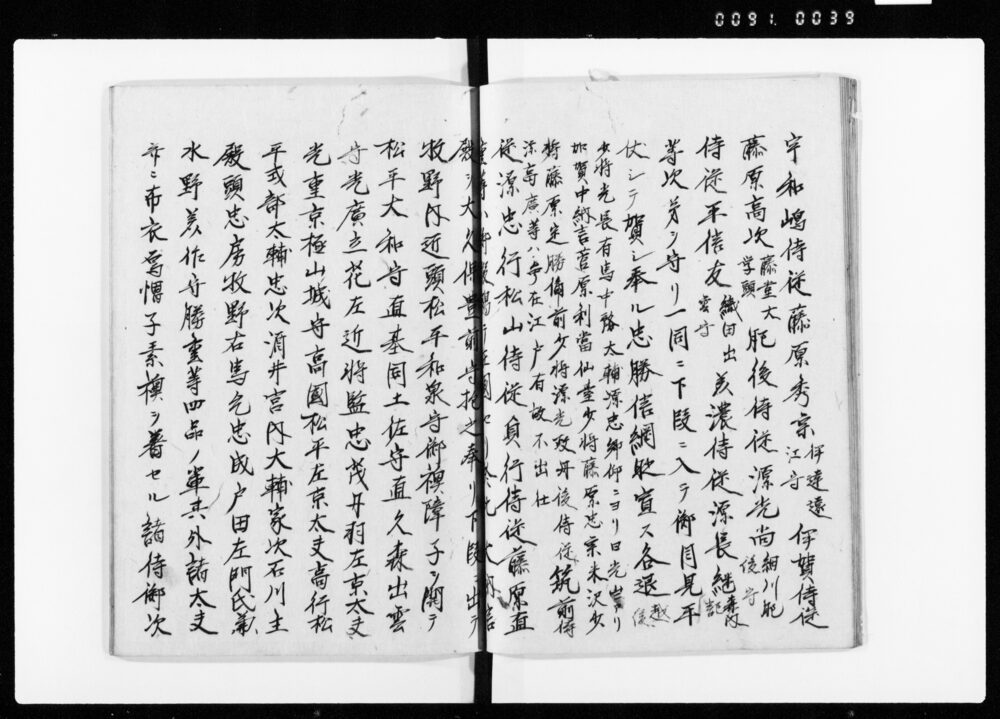 0091.0039
宇和嶋侍従藤原秀宗伊達遠江守伊賀侍従
藤原高次藤堂大学頭肥後侍従源光尚細川肥後守
侍従平信友織田出雲守美濃侍従源長継森内記
等次第ヲ守リ一同ニ下段ニ入テ御目見平
伏シテ賀シ奉ル忠勝信綱敗賓ス各退越後
少将光長有馬中務太輔源忠郷仰ニヨリ日光山ヨリ
加賀中納言菅原利當仙臺少将藤原忠宗米沢少
将藤原定勝備前少将源光政丹後侍従筑前侍
京高廣等ハ今在江戸有故不出仕
従源忠行松山侍従貞行侍従藤原直
殿ヨリ大久保豊前守抱之奉リ下段ニ出テ
牧野内近頭松平和泉守御襖障子ヲ開テ
松平大和守直基同土佐守直久森出雲
守光廣立花左近将監忠茂丹羽左京太夫
光重京極山城守高國松平左京太夫高行松
平式部太輔忠次酒井宮内大輔家次石川主
殿頭忠房牧野右馬允忠成戸田左門氏鉄
水野美作守勝重等四品ノ輩其外諸太夫
并ニ布衣烏帽子素襖ヲ著セル諸侍御次